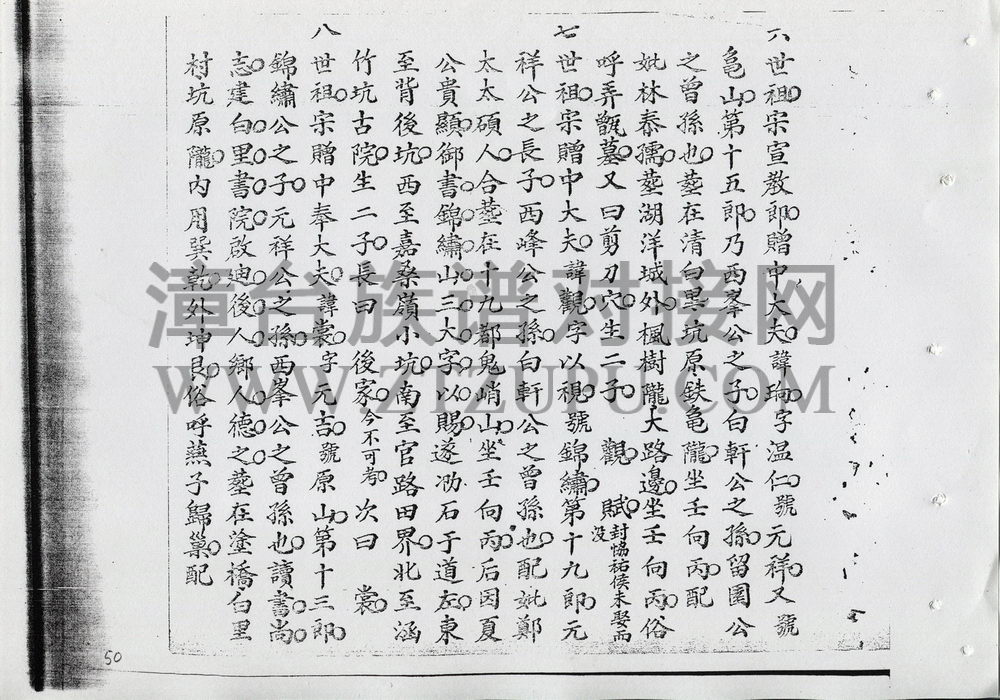 六世祖宋宣教郎贈中大夫諱珣字温仁號元祥又號
龜山第十五郎乃西峯公之子白軒公之孫留園公
之曾孫也塟在清白里坑原鉄龜隴坐壬向丙配
妣林泰孺塟湖洋城外楓樹隴大路邊坐壬向丙俗
呼弄甑墓又曰剪刀穴生二子 觀 賦封恊祐侯未娶而没
七世祖宋贈中大夫諱觀字以視號錦繡第十九郎元
祥公之長子西峰公之孫白軒公之曾孫也配妣鄭
太太碩人合塟在十九都鬼峭山坐壬向丙后因夏
公貴顯御書錦繡山三大字以賜遂泐石于道左東
至背後坑西至嘉桑嶺小坑南至官路田界北至涵
竹坑古院生二子長曰 後家今不可考 次曰 裳
八世祖宋贈中奉大夫諱裳字元吉號原山第十三郎
錦繡公之子元祥公之孫西峯公之曾孫也讀書尚
志建白里書院啟迪後人鄉人德之塟在塗橋白里
村坑原隴内用巽乾外坤艮俗呼燕子歸巢配
50
漳台族谱对接网
WWW.ZTZUPU.COM